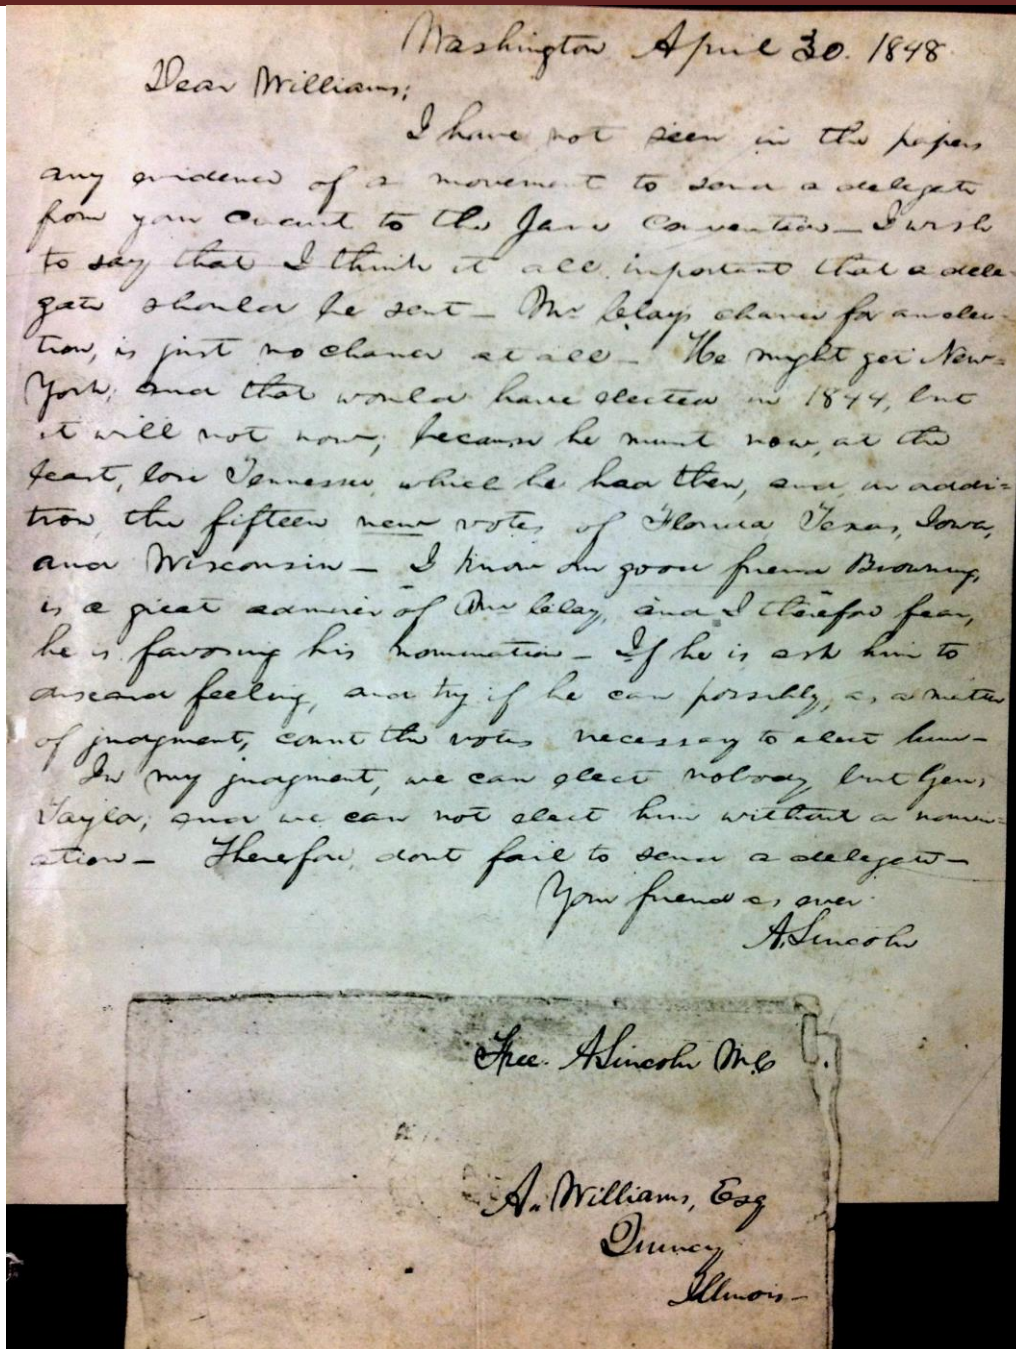 Washington April 30. 1848
Dear Williams;
I have not seen in the papers
any evidence of a movement to send a delegate
from your circuit to the June convention — I wish
to say that I think it all important that a dele-
gate should be sent — Mr Clay's chance for an elec-
tion, is just no chance at all — He might get New-
York; and that would have elected in 1844, but
it will not now; because he must now, at the
least, lose Tennessee, which he had then, and, in addi-
tion, the fifteen new votes of Florida, Texas, Iowa,
and Wisconsin — I know our good friend Browning,
is a great admirer of Mr Clay, and I therefore fear,
he is favoring his nomination — If he is ask him to
discard feeling, and try if he can possibly, as a matter
of judgment, count the votes necessary to elect him —
In my judgment, we can elect nobody but Gen:
Taylor; and we can not elect him without a nomin-
ation — Therefore, dont fail to send a delegate —
Your friend as ever
A. Lincoln
Free. A Lincoln M.C
A. Williams, Esq
Quincy
Illinois —